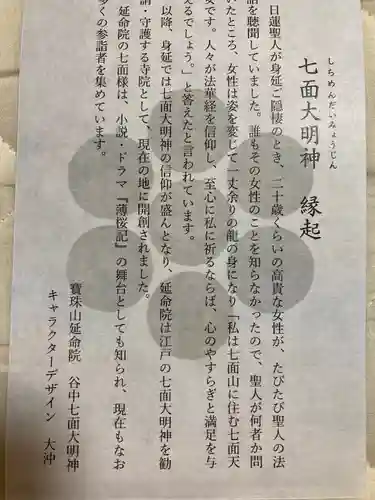 しちめんだいみょうじん
七面大明神 縁起
日蓮聖人が身延ご隠棲のとき、二十歳くらいの高貴な女性が、たびたび聖人の法
話を聴聞していました。誰もその女性のことを知らなかったので、聖人が何者か問
いたところ、女性は姿を変じて一丈余りの龍の身になり「私は七面山に住む七面天
女です。人々が法華経を信仰し、至心に私に祈るならば、心のやすらぎと満足を与
えるでしょう。」と答えたと言われています。
以降、身延では七面大明神の信仰が盛んとなり、延命院は江戸の七面大明神を勧
請・守護する寺院として、現在の地に開創されました。
延命院の七面様は、小説・ドラマ『薄桜記』の舞台としても知られ、現在もなお
多くの参詣者を集めています。
寶珠山延命院 谷中七面大明神
キャラクターデザイン 大沖